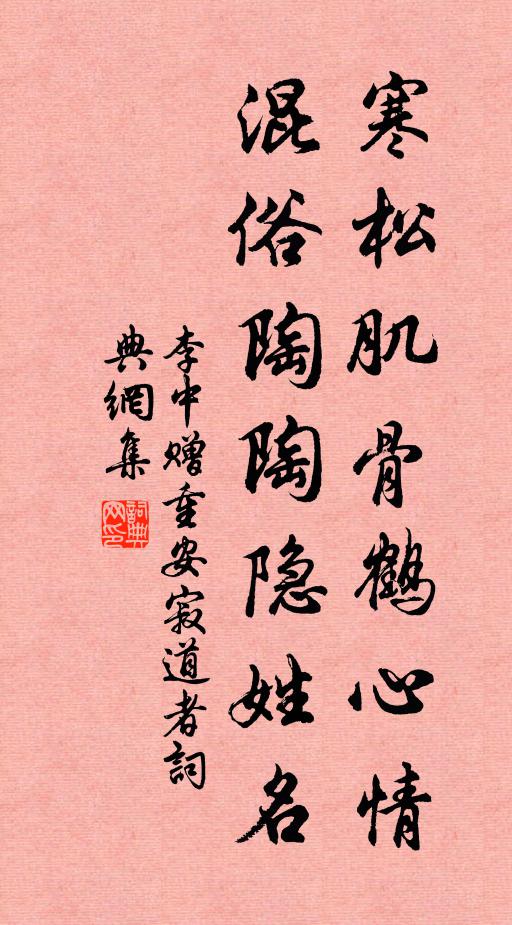 寒松肌骨鹤心情
混俗陶陶隐姓名
李中赠重安寂道者詞
典網集
詞典
网印